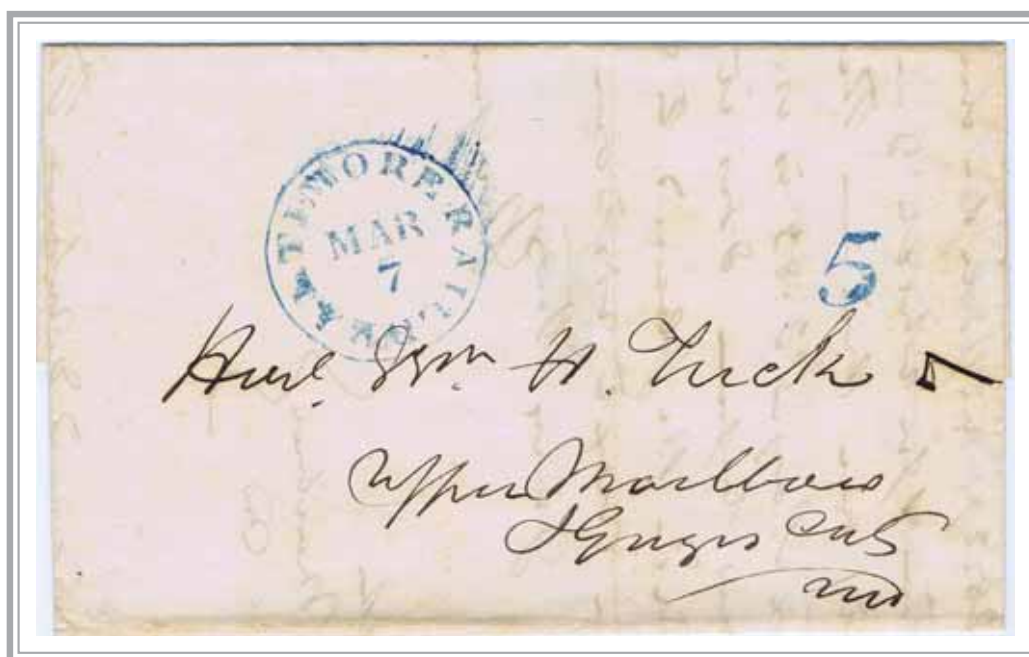 BALTIMORE RAILROAD
MAR
7
5
Honl. Wm H. Tuck
Upper Marlboro
P Georges Cnty
Md